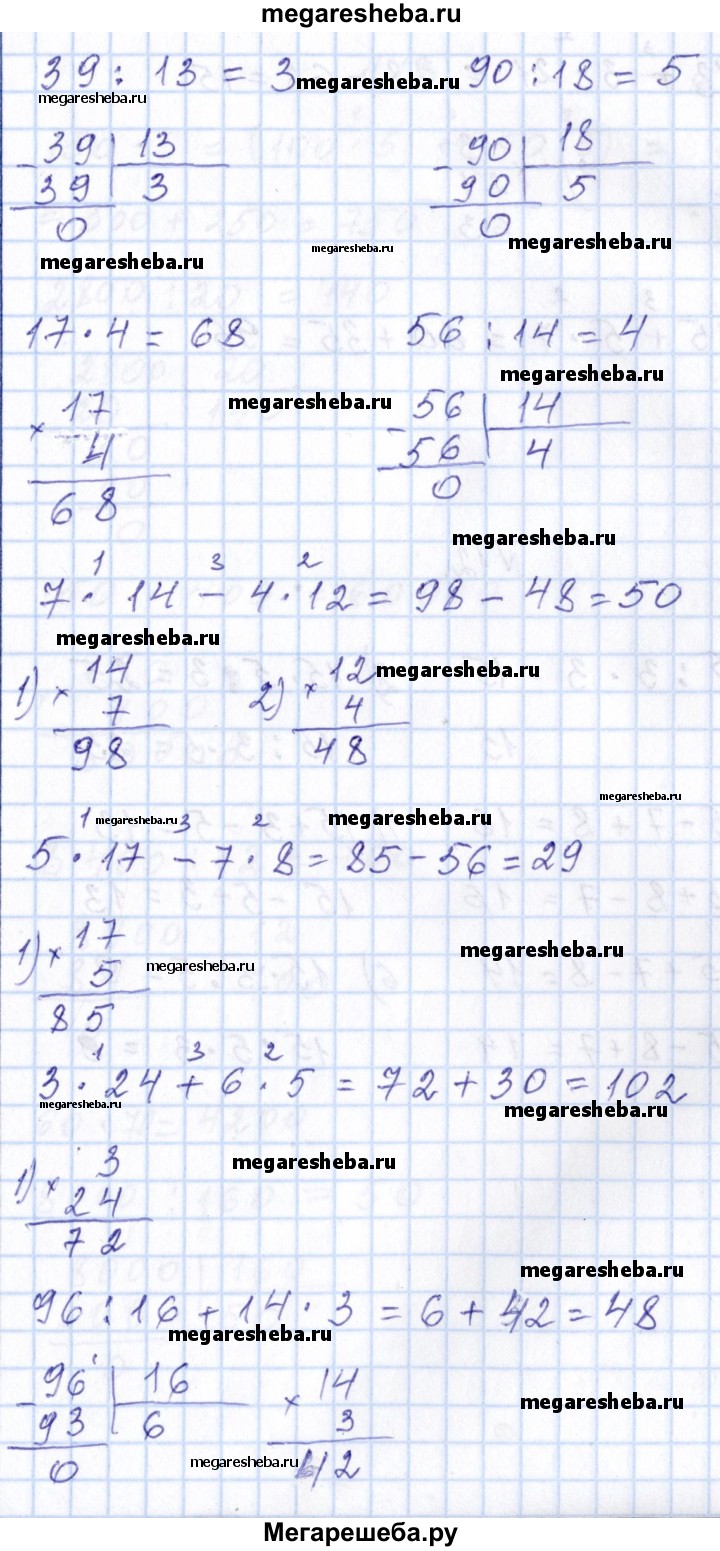 megaresheba.ru
39 : 13 = 3 megaresheba.ru 90 : 18 = 5
megaresheba.ru
- 39 | 13 - 90 | 18
39 | 3 90 | 5
0 0
megaresheba.ru megaresheba.ru megaresheba.ru
17 · 4 = 68 56 : 14 = 4
megaresheba.ru
× 17 megaresheba.ru - 56 | 14
4 56 | 4
68 0
megaresheba.ru
1 3 2
7 · 14 - 4 · 12 = 98 - 48 = 50
megaresheba.ru
1) × 14 2) × 12 megaresheba.ru
7 4
98 48
megaresheba.ru
1 megaresheba.ru 3 2 megaresheba.ru
5 · 17 - 7 · 8 = 85 - 56 = 29
1) × 17 megaresheba.ru
5 megaresheba.ru
85
1 3 2
3 · 24 + 6 · 5 = 72 + 30 = 102
megaresheba.ru megaresheba.ru
1) × 3 megaresheba.ru
24
72
megaresheba.ru
96 : 16 + 14 · 3 = 6 + 42 = 48
megaresheba.ru
- 96 | 16 × 14 megaresheba.ru
93 | 6 3
0 megaresheba.ru 42
Мегарешеба.ру